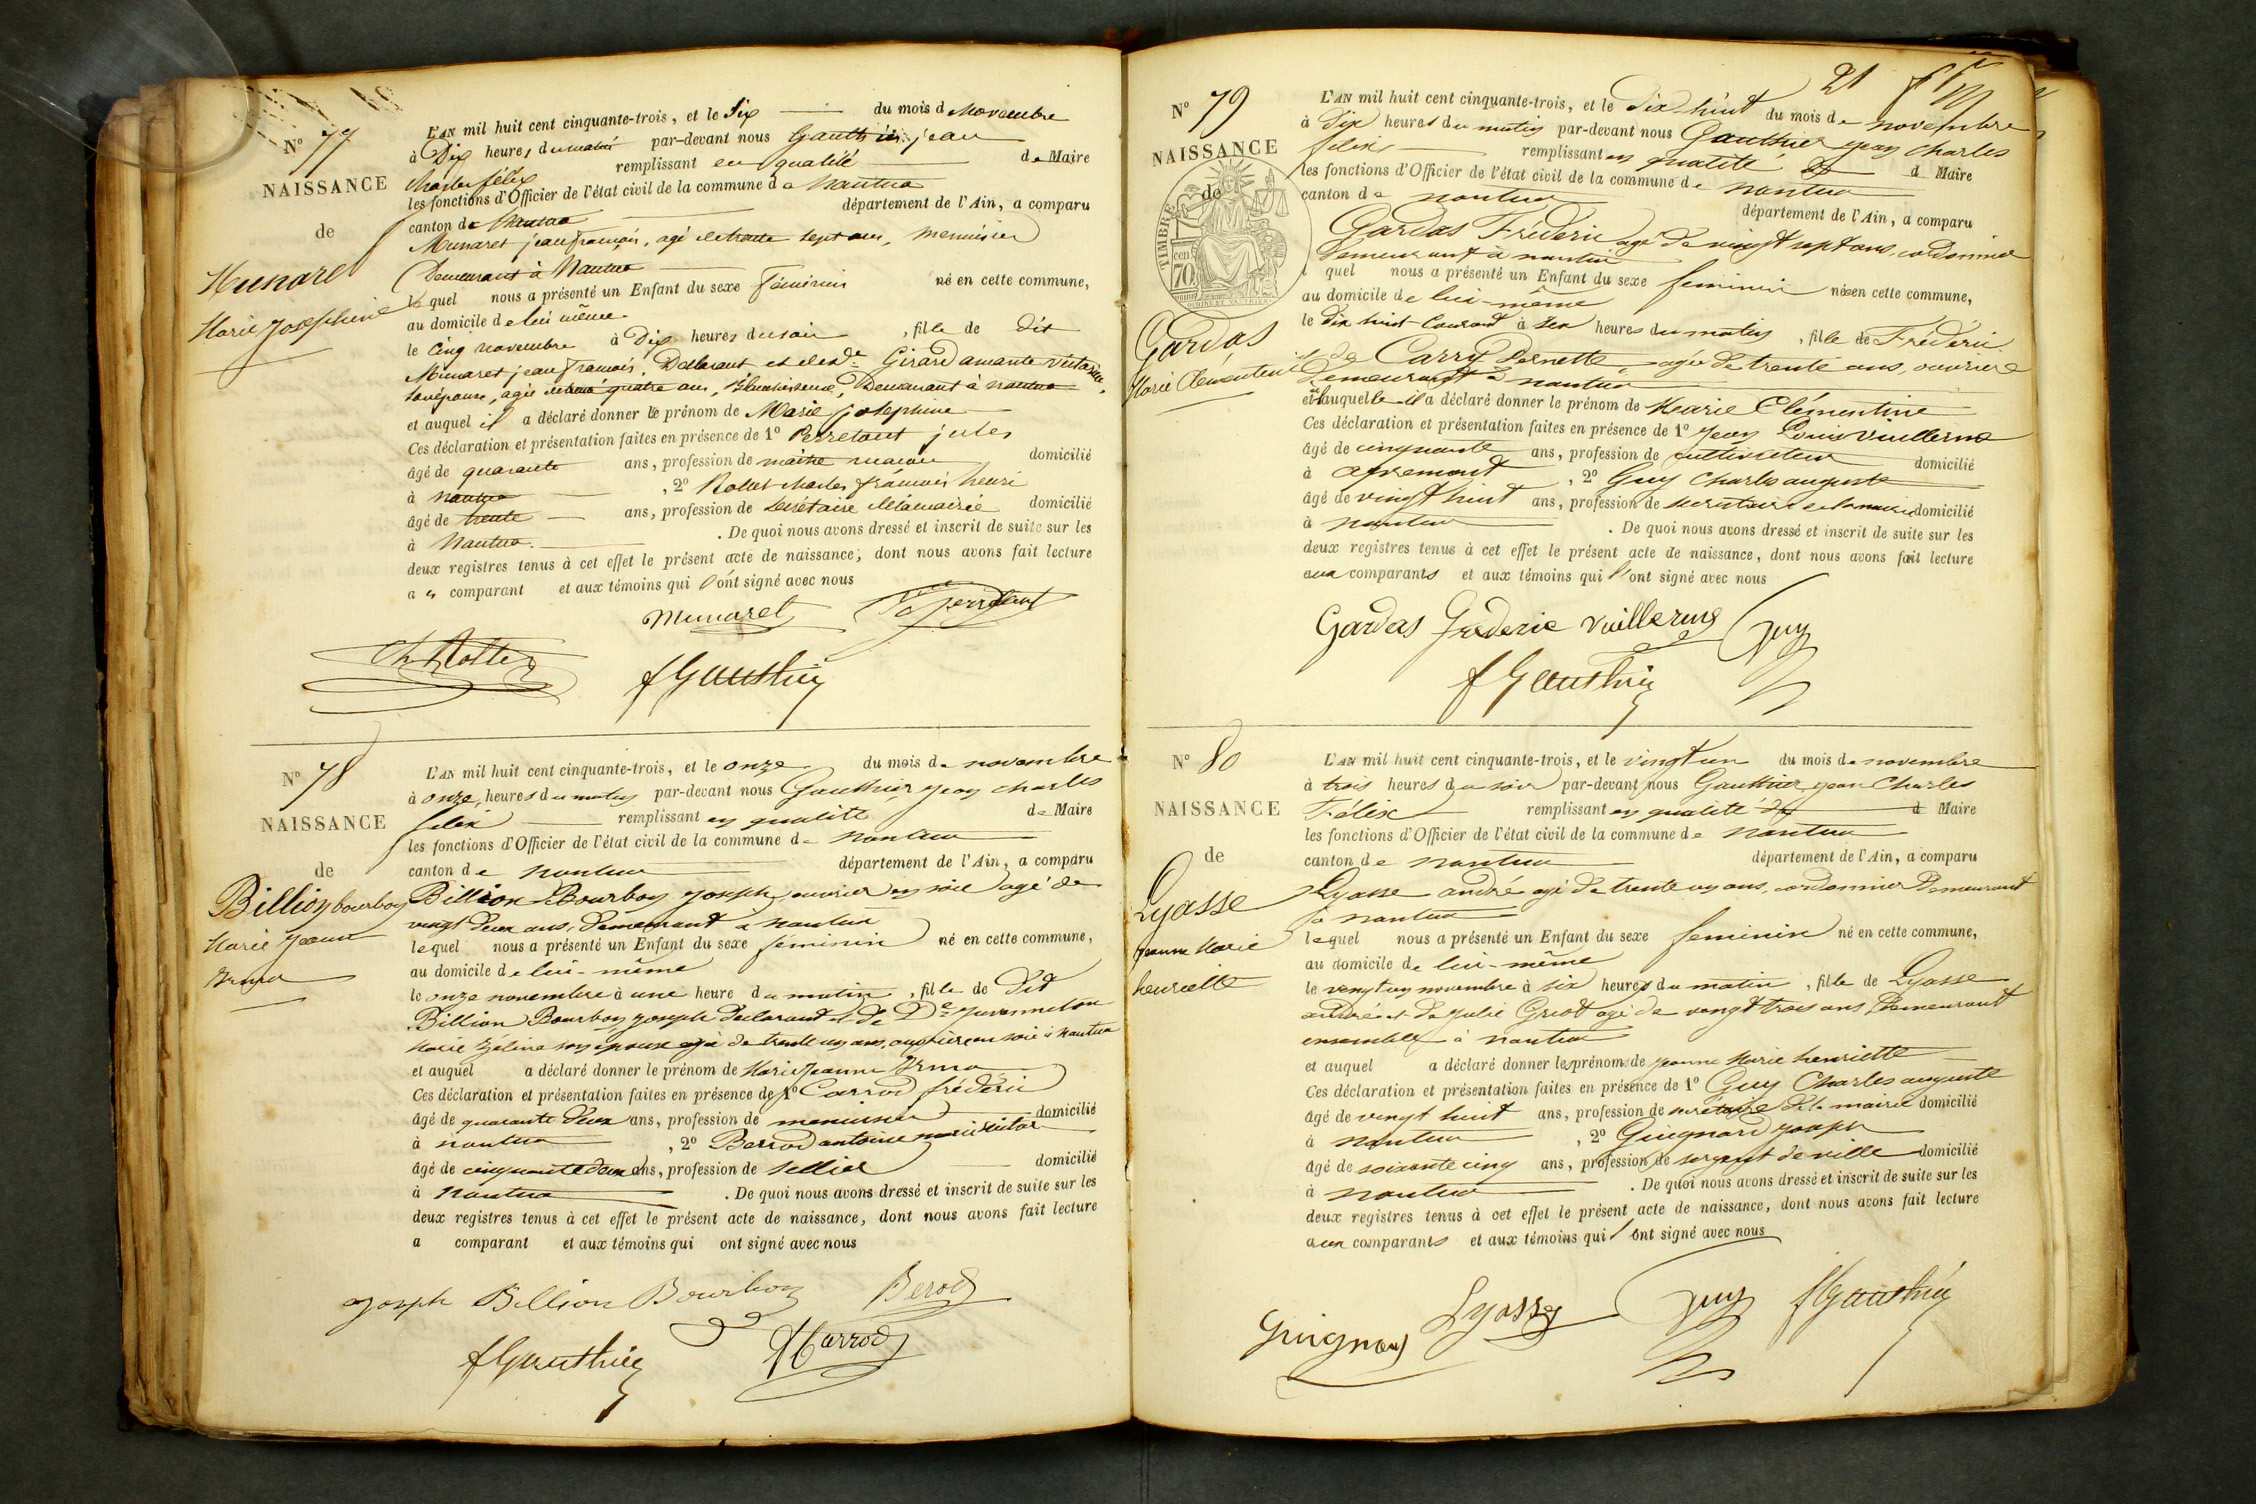 N° 77
NAISSANCE
de
Munaret
Marie Josephine
L'AN mil huit cent cinquante-trois, et le Six du mois de Novembre
à Dix heures du matin par-devant nous Gauthier jean
Charles félix remplissant en qualité de Maire
les fonctions d'Officier de l'état civil de la commune de Nantua
canton de Nantua département de l'Ain, a comparu
Munaret jean françois, agé de trente sept ans, Menuisier
Demeurant à Nantua
lequel nous a présenté un Enfant du sexe féminin né en cette commune,
au domicile de lui même
le cinq novembre à Dix heures du soir, fille de dit
Munaret jean françois, Déclarant et de De Girard amante
son épouse, agée de quatre ans, Demeurant à Nantua
et auquel il a déclaré donner le prénom de Marie josephine
Ces déclaration et présentation faites en présence de 1° Perretant jules
âgé de quarante ans, profession de maître macon domicilié
à Nantua, 2° Rollet charles françois henri
âgé de trente ans, profession de Secrétaire de la mairie domicilié
à Nantua. De quoi nous avons dressé et inscrit de suite sur les
deux registres tenus à cet effet le présent acte de naissance, dont nous avons fait lecture
au comparant et aux témoins qui l'ont signé avec nous
Munaret Perretant
Ch Rollet
f Gauthier
N° 78
NAISSANCE
de
Billion bourbon
Marie Jeanne
Irma
L'AN mil huit cent cinquante-trois, et le onze du mois de novembre
à onze heures du matin par-devant nous Gauthier jean charles
felix remplissant en qualité de Maire
les fonctions d'Officier de l'état civil de la commune de nantua
canton de nantua département de l'Ain, a comparu
Billion Bourbon joseph ouvrier en soie agé de
vingt deux ans, demeurant a nantua
lequel nous a présenté un Enfant du sexe féminin né en cette commune,
au domicile de lui-même
le onze novembre à une heure du matin, fille de Dit
Billion Bourbon joseph declarant et de De juvanneton
Marie Zéline son epouse agée de trente un ans, ouvrière en soie à Nantua
et auquel a déclaré donner le prénom de Marie Jeanne Irma
Ces déclaration et présentation faites en présence de 1° Carrod frédéric
âgé de quarante deux ans, profession de menuisier domicilié
à nantua, 2° Berrod antoine marie victor
âgé de cinquante deux ans, profession de sellier domicilié
à Nantua. De quoi nous avons dressé et inscrit de suite sur les
deux registres tenus à cet effet le présent acte de naissance, dont nous avons fait lecture
a comparant et aux témoins qui ont signé avec nous
joseph Billion Bourbon Berod
f Gauthier Carrod
21
N° 79
NAISSANCE
de
TIMBRE
70 cen
Gardas
Marie Clémentine
L'AN mil huit cent cinquante-trois, et le Dix huit du mois de novembre
à Dix heures du matin par-devant nous Gauthier jean charles
felix remplissant en qualité de Maire
les fonctions d'Officier de l'état civil de la commune de nantua
canton de nantua département de l'Ain, a comparu
Gardas Fréderic agé de vingt sept ans, cordonnier
demeurant à nantua
quel nous a présenté un Enfant du sexe feminin née en cette commune,
au domicile de lui-même
le dix huit Courant à Sex heures du matin, fille de Fréderic
et de Carry Pernette agée de trente ans, ouvriere
demeurant à nantua
et auquelle il a déclaré donner le prénom de Marie Clémentine
Ces déclaration et présentation faites en présence de 1° jean Louis Vuillerme
âgé de cinquante ans, profession de cultivateur domicilié
à apremont, 2° Guy Charles auguste
âgé de vingt huit ans, profession de secretaire de la mairie domicilié
à nantua. De quoi nous avons dressé et inscrit de suite sur les
deux registres tenus à cet effet le présent acte de naissance, dont nous avons fait lecture
aux comparants et aux témoins qui l'ont signé avec nous
Gardas frederic Vuillerme Guy
f Gauthier
N° 80
NAISSANCE
de
Lyasse
jeanne Marie
henriette
L'AN mil huit cent cinquante-trois, et le vingt un du mois de novembre
à trois heures du soir par-devant nous Gauthier jean Charles
Félix remplissant en qualité de Maire
les fonctions d'Officier de l'état civil de la commune de nantua
canton de nantua département de l'Ain, a comparu
Lyasse andré agé de trente un ans, cordonnier Demeurant
à nantua
lequel nous a présenté un Enfant du sexe feminin né en cette commune,
au domicile de lui-même
le vingt un novembre à six heures du matin, fille de Lyasse
andré et de Julie Griot agé de vingt trois ans Demeurant
ensemble à nantua
et auquel a déclaré donner les prénoms de jeanne Marie henriette
Ces déclaration et présentation faites en présence de 1° Guy Charles auguste
âgé de vingt huit ans, profession de secrétaire de la mairie domicilié
à Nantua, 2° Guignard joseph
âgé de soixante cinq ans, profession de sergent de ville domicilié
à nantua. De quoi nous avons dressé et inscrit de suite sur les
deux registres tenus à cet effet le présent acte de naissance, dont nous avons fait lecture
aux comparants et aux témoins qui l'ont signé avec nous
Guignard Lyasse Guy f Gauthier